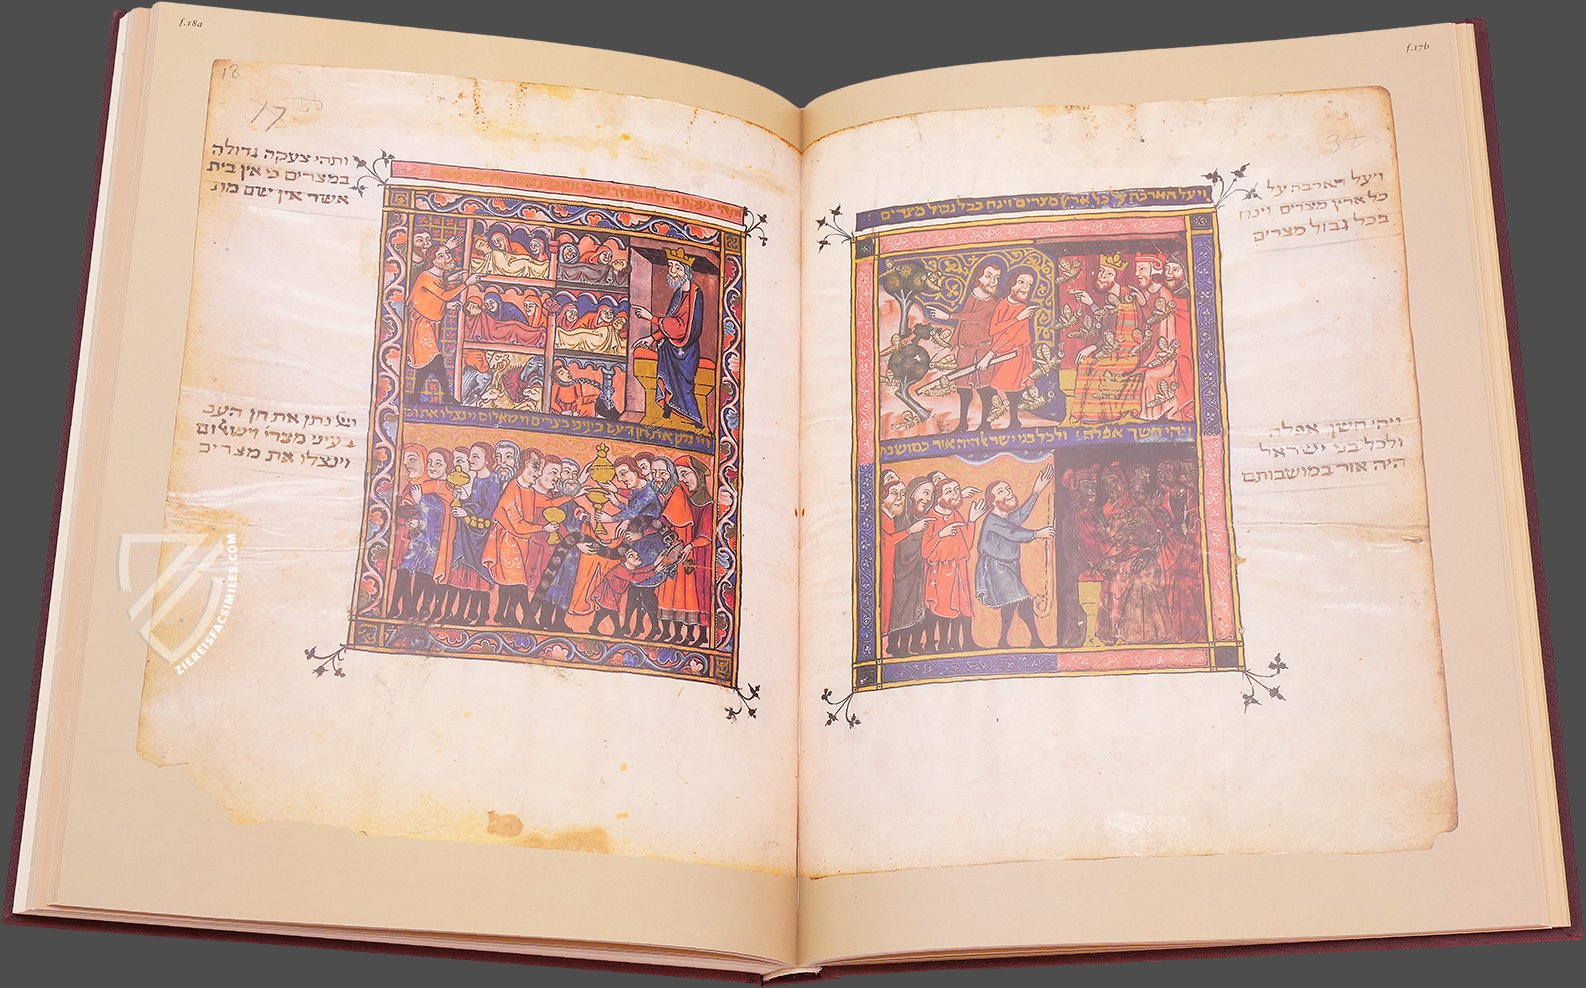 f.17b
38
ויעל הארבה על כל ארץ מצרים וינח בכל גבול מצרים
ויעל הארבה על
כל ארץ מצרים וינח
בכל גבול מצרים
ויהי חשך אפלה ולכל בני ישראל היה אור במושבת
ויהי חשך אפלה
ולכל בני ישראל
היה אור במושבותם
f.18a
18
17
ותהי צעקה גדולה
במצרים כי אין בית
אשר אין שם מת
ויי נתן את חן העם
ויי נתן את חן העם
בעיני מצרי וישאלום
וינצלו את מצרים
ZIEREISFACSIMILES.COM